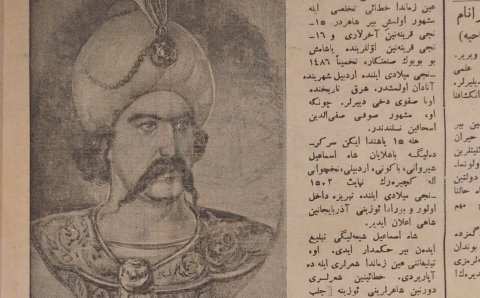 عین زماندا خطائی تخلصی ایله
مشهور اولمش بیر شاعردر ۱۵-
نجی قرینه‌نین آخرلاری و ۱۶-
نجی قرینه‌نین اوّللرینده یاشامش
بو بویوك صنعتكاره تخمیناً ۱۴۸۶
-نجی میلادی ایلنده اردبیل شهرینده
آنادان اولمشدر. شرق تاریخنده
اونا صفوی دخی دییرلر. چونكه
او مشهور صوفی صفی‌الدین
اسحاقین نسلندندر.
هنه ۱۵ یاشندا ایكن سركر-
ده‌لیگه باشلایان شاه اسماعیل
شیروانی، باكونی، اردبیلی، نخچوانی
اله كچیره‌رك نهایت ۱۵۰۲
-نجی میلادی ایلنده تبریزه داخل
اولور و بورادا اوزینی آذربایجانین
شاهی اعلان ایدیر.
شاه اسماعیل شیعه‌لیگی تبلیغ
ایده‌ن بیر حكمدار ایدی. او
تبلیغاتنی عین زماندا شعرلری ایله ده
آپاریردی. خطائینین شعرلری
دورنین شاعرلرینی اوزینه جلب
علمی
حیران
دولتین
مهم
گمزده
بوندان